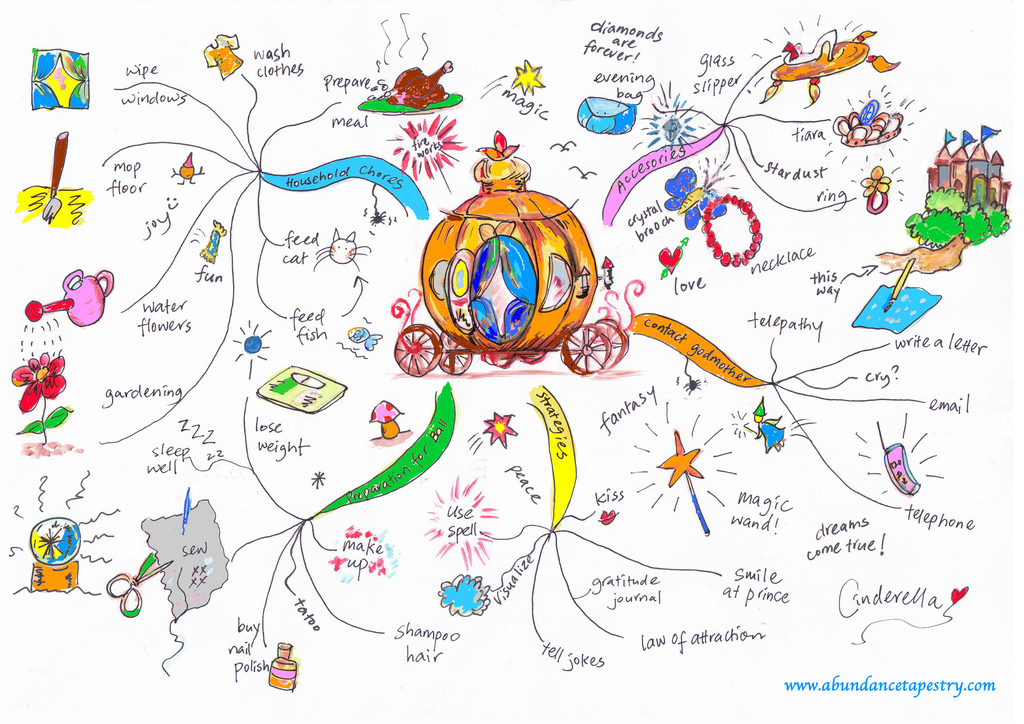 wipe
windows
wash
clothes
prepare
meal
magic
fire
works
diamonds
are
forever!
evening
bag
glass
slipper
tiara
stardust
ring
Accesories
crystal
brooch
necklace
love
this
way
Household Chores
mop
floor
joy
fun
feed
cat
feed
fish
water
flowers
gardening
Contact godmother
telepathy
write a letter
cry?
email
telephone
fantasy
magic
wand!
dreams
come true!
lose
weight
zzz
zz
sleep
well
Preparation for Ball
sew
xx
xx
make
up
tatoo
buy
nail
polish
shampoo
hair
Strategies
peace
Use
Spell
kiss
Visualize
gratitude
journal
smile
at prince
law of attraction
tell jokes
Cinderella
www.abundancetapestry.com